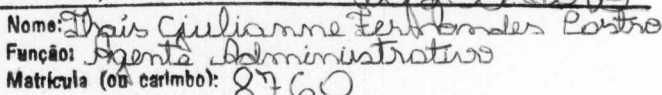 Nome: Thaís Giulianne Fernandes Castro
Função: Agente Administrativo
Matrícula (ou carimbo): 8760